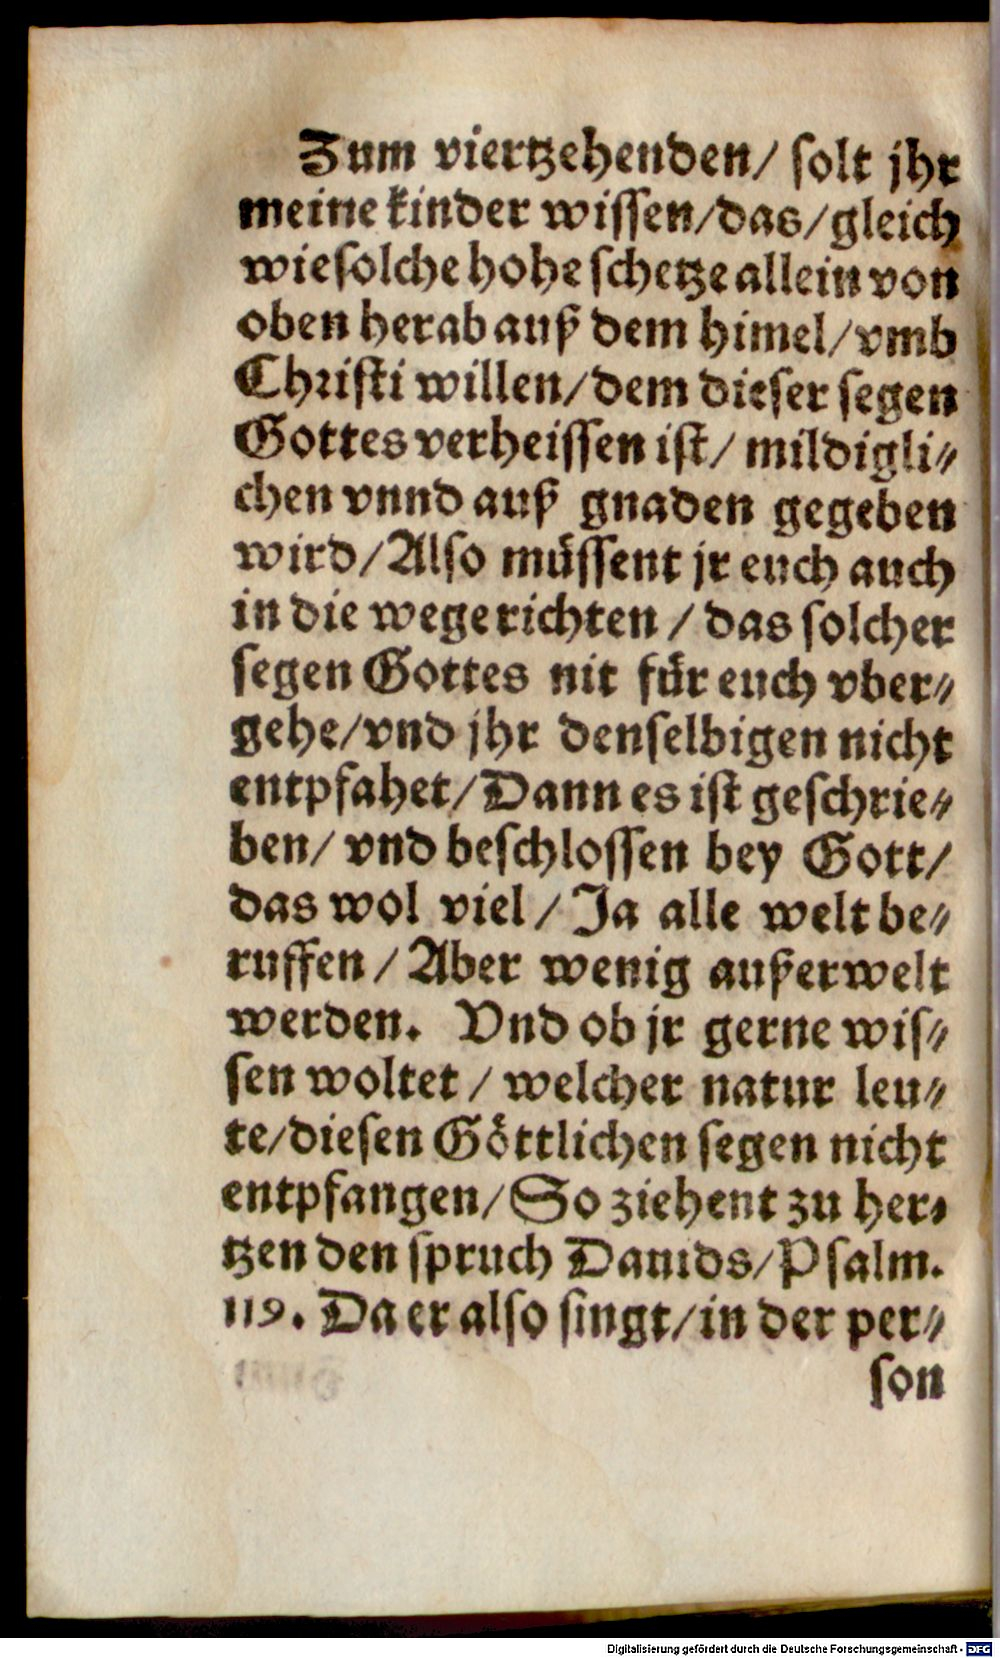 Zum viertzehenden/ solt jhr
meine kinder wissen/das/gleich
wie solche hohe schetze allein von
oben herab auß dem himel/vmb
Christi willen/dem dieser segen
Gottes verheissen ist/ mildigli⸗
chen vnnd auß gnaden gegeben
wird/Also müssent jr euch auch
in die wege richten / das solcher
segen Gottes nit für euch vber⸗
gehe/vnd jhr denselbigen nicht
entpfahet/Dann es ist geschrie⸗
ben/ vnd beschlossen bey Gott/
das wol viel / Ja alle welt be⸗
ruffen / Aber wenig außerwelt
werden. Vnd ob jr gerne wis⸗
sen woltet / welcher natur leu⸗
te/diesen Göttlichen segen nicht
entpfangen/So ziehent zu her⸗
tzen den spruch Dauids/Psalm.
119. Da er also singt/in der per⸗
son
Digitalisierung gefördert durch die Deutsche Forschungsgemeinschaft - DFG